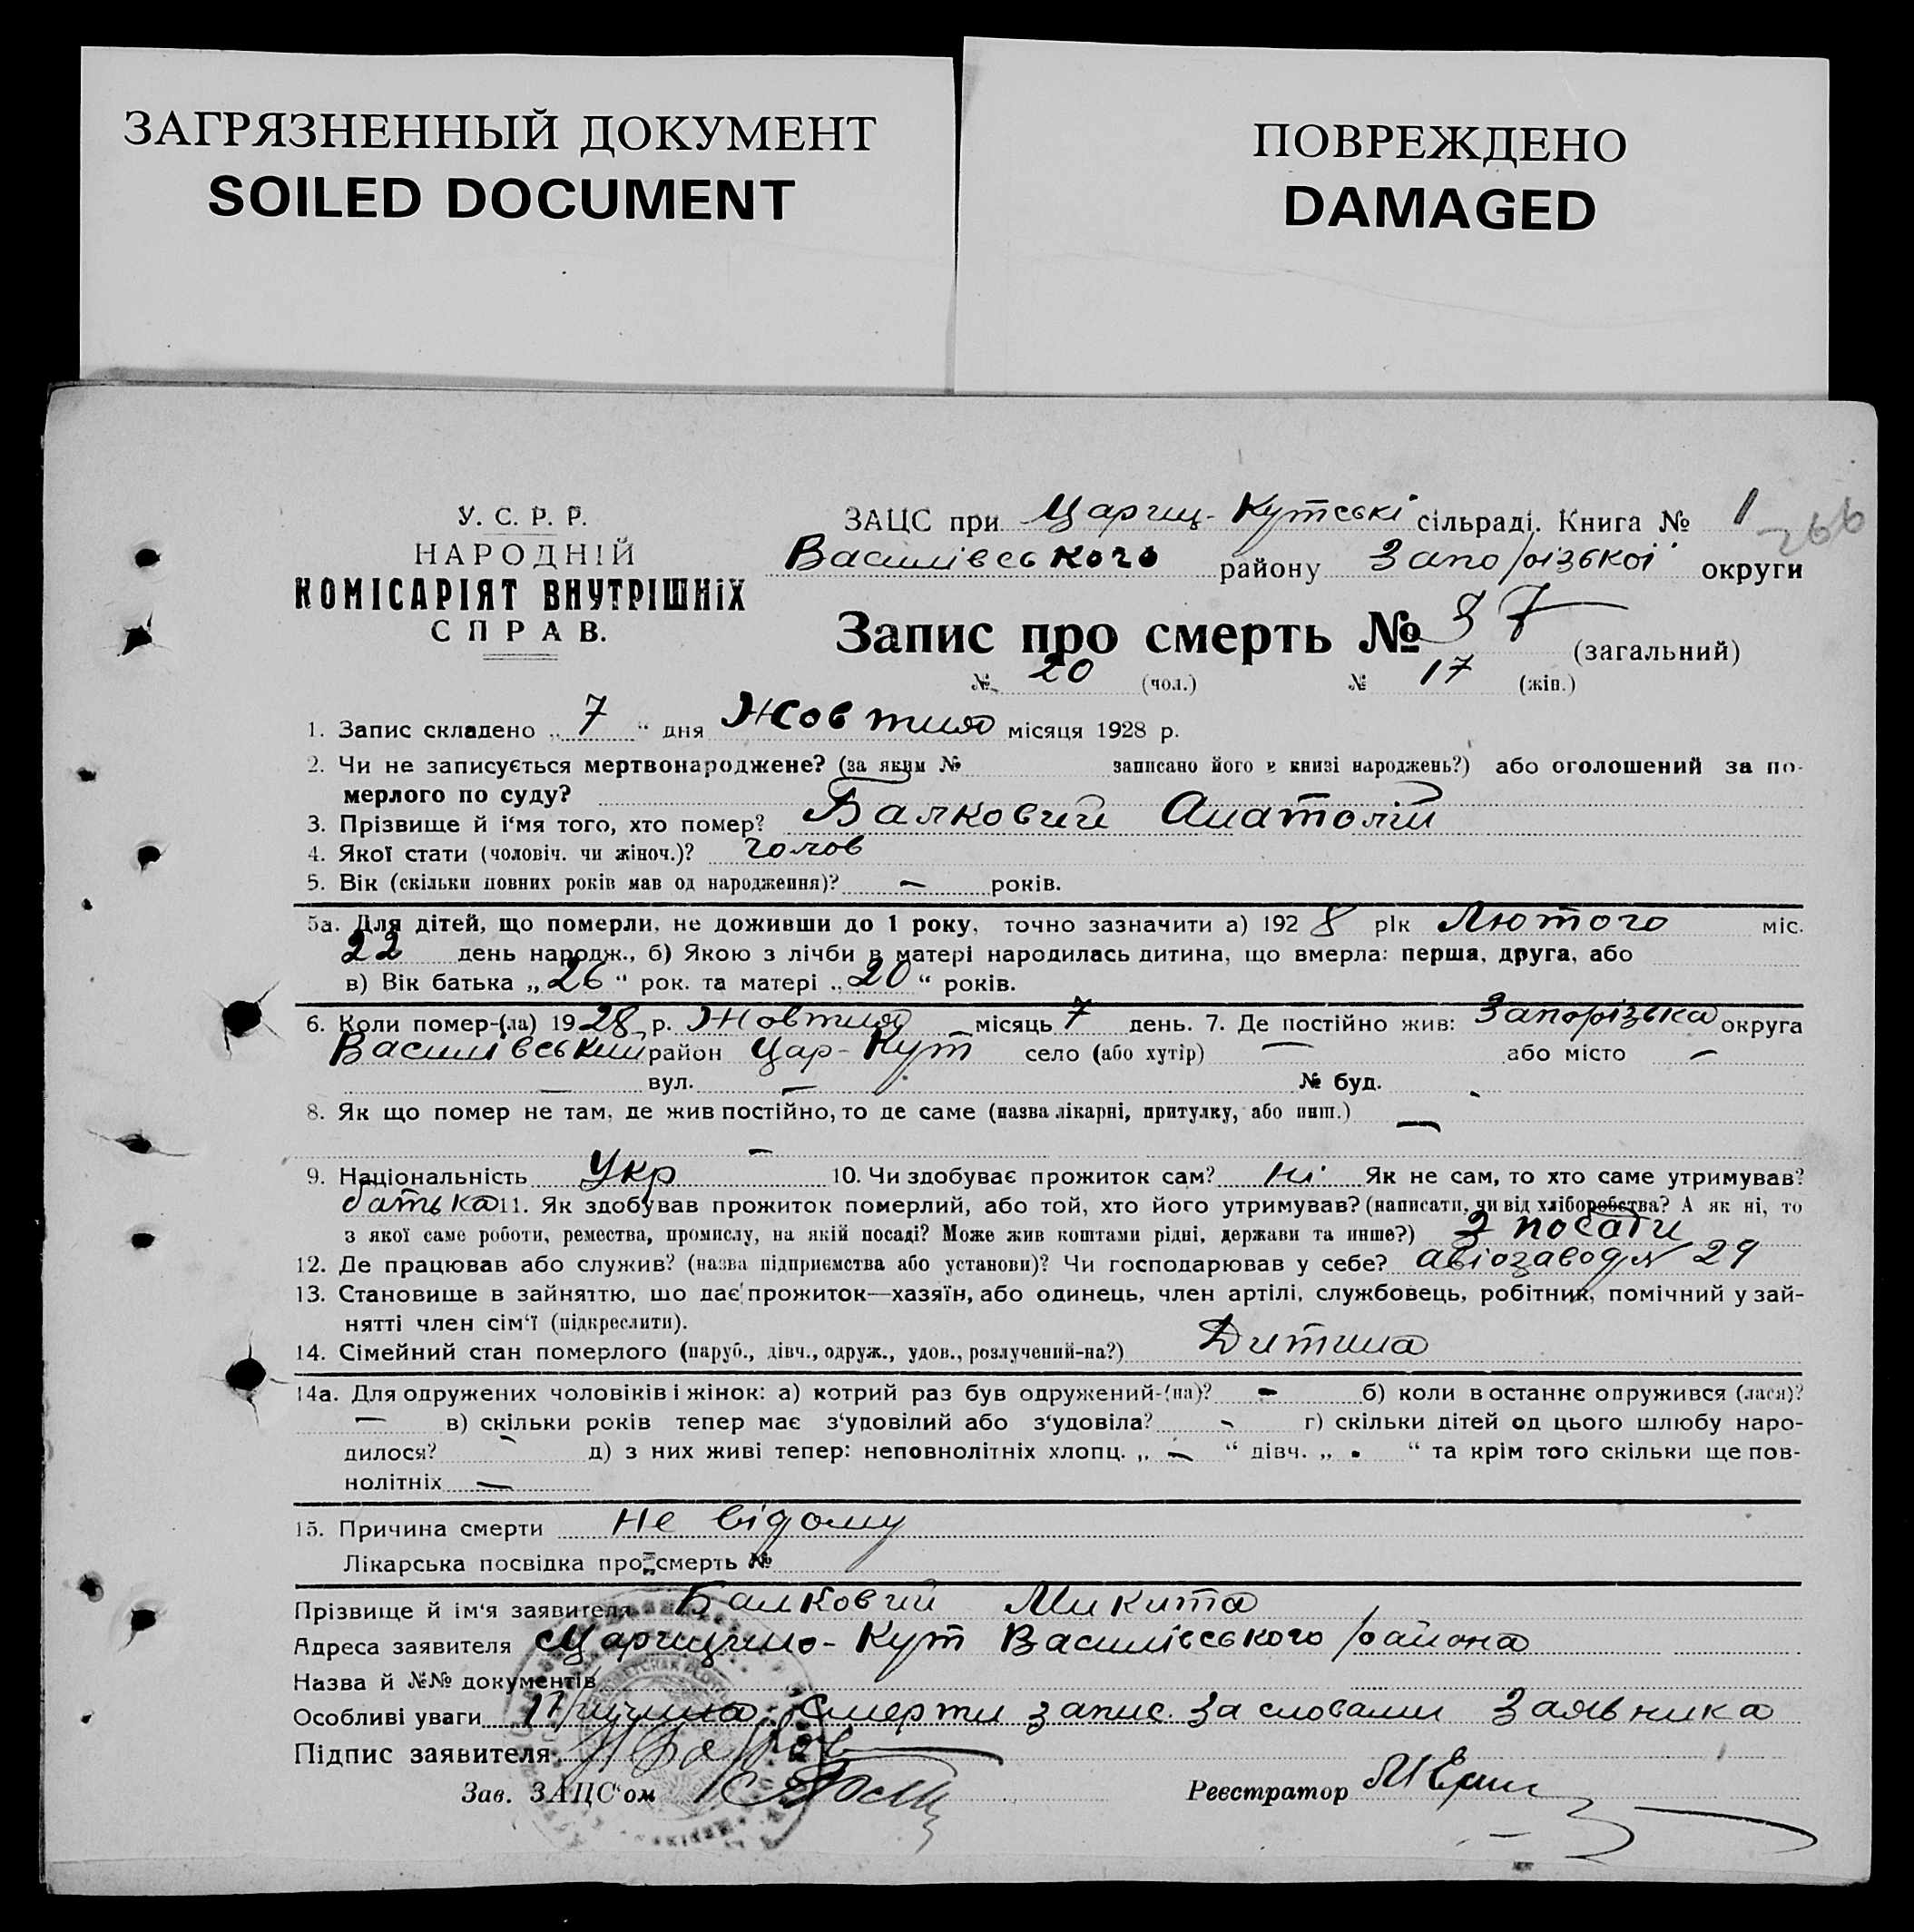 ЗАГРЯЗНЕННЫЙ ДОКУМЕНТ
SOILED DOCUMENT
ПОВРЕЖДЕНО
DAMAGED
У. С. Р. Р.
НАРОДНІЙ
КОМІСАРІЯТ ВНУТРІШНІХ
СПРАВ.
ЗАЦС при Цариц-Кутські сільраді. Книга № 1
266
Василівського району Запорізької округи
Запис про смерть № 37 (загальний)
№ 20 (чол.) № 17 (жін.)
1. Запис складено „ 7 “ дня Жовтня місяця 1928 р.
2. Чи не записується мертвонароджене? (за яким № записано його в книзі народжень?) або оголошений за по-
мерлого по суду?
3. Прізвище й і‘мя того, хто помер? Балковий Анатолій
4. Якої стати (чоловіч. чи жіноч.)? чолов
5. Вік (скільки повних років мав од народження)? — років.
5а. Для дітей, що померли, не доживши до 1 року, точно зазначити а) 1928 рік Лютого міс.
22 день народж., б) Якою з лічби в матері народилась дитина, що вмерла: перша, друга, або
в) Вік батька „ 26 “ рок. та матері „ 20 “ років.
6. Коли помер-(ла) 1928 р. Жовтня місяць 7 день. 7. Де постійно жив: Запорізька округа
Василівський район Цар-Кут село (або хутір) — або місто —
— вул. — № буд.
8. Як що помер не там, де жив постійно, то де саме (назва лікарні, притулку, або инш.) —
—
9. Національність Укр 10. Чи здобуває прожиток сам? Ні Як не сам, то хто саме утримував?
батька 11. Як здобував прожиток померлий, або той, хто його утримував? (написати, чи від хліборобства? А як ні, то
з якої саме роботи, ремества, промислу, на якій посаді? Може жив коштами рідні, держави та инше?) З посади
12. Де працював або служив? (назва підприємства або установи)? Чи господарював у себе? авіозавод № 29
13. Становище в зайняттю, що дає прожиток—хазяїн, або одинець, член артілі, службовець, робітник, помічний у зай-
нятті член сім‘ї (підкреслити).
14. Сімейний стан померлого (паруб., дівч., одруж., удов., розлучений-на?) Дитина
14а. Для одружених чоловіків і жінок: а) котрий раз був одружений-(на)? — б) коли в останнє одружився (лася)?
— в) скільки років тепер має з‘удовілий або з‘удовіла? - г) скільки дітей од цього шлюбу наро-
дилося? - д) з них живі тепер: неповнолітніх хлопц. „ — “ дівч. „ - “ та крім того скільки ще пов-
нолітніх —
15. Причина смерти Не відому
Лікарська посвідка про смерть №
Прізвище й ім‘я заявителя Балковий Микита
Адреса заявителя Царицино-Кут Василівського района
Назва й №№ документів
Особливі уваги Причина смерти запис. За словами Заявника
Підпис заявителя
Зав. ЗАЦС‘ом Реєстратор